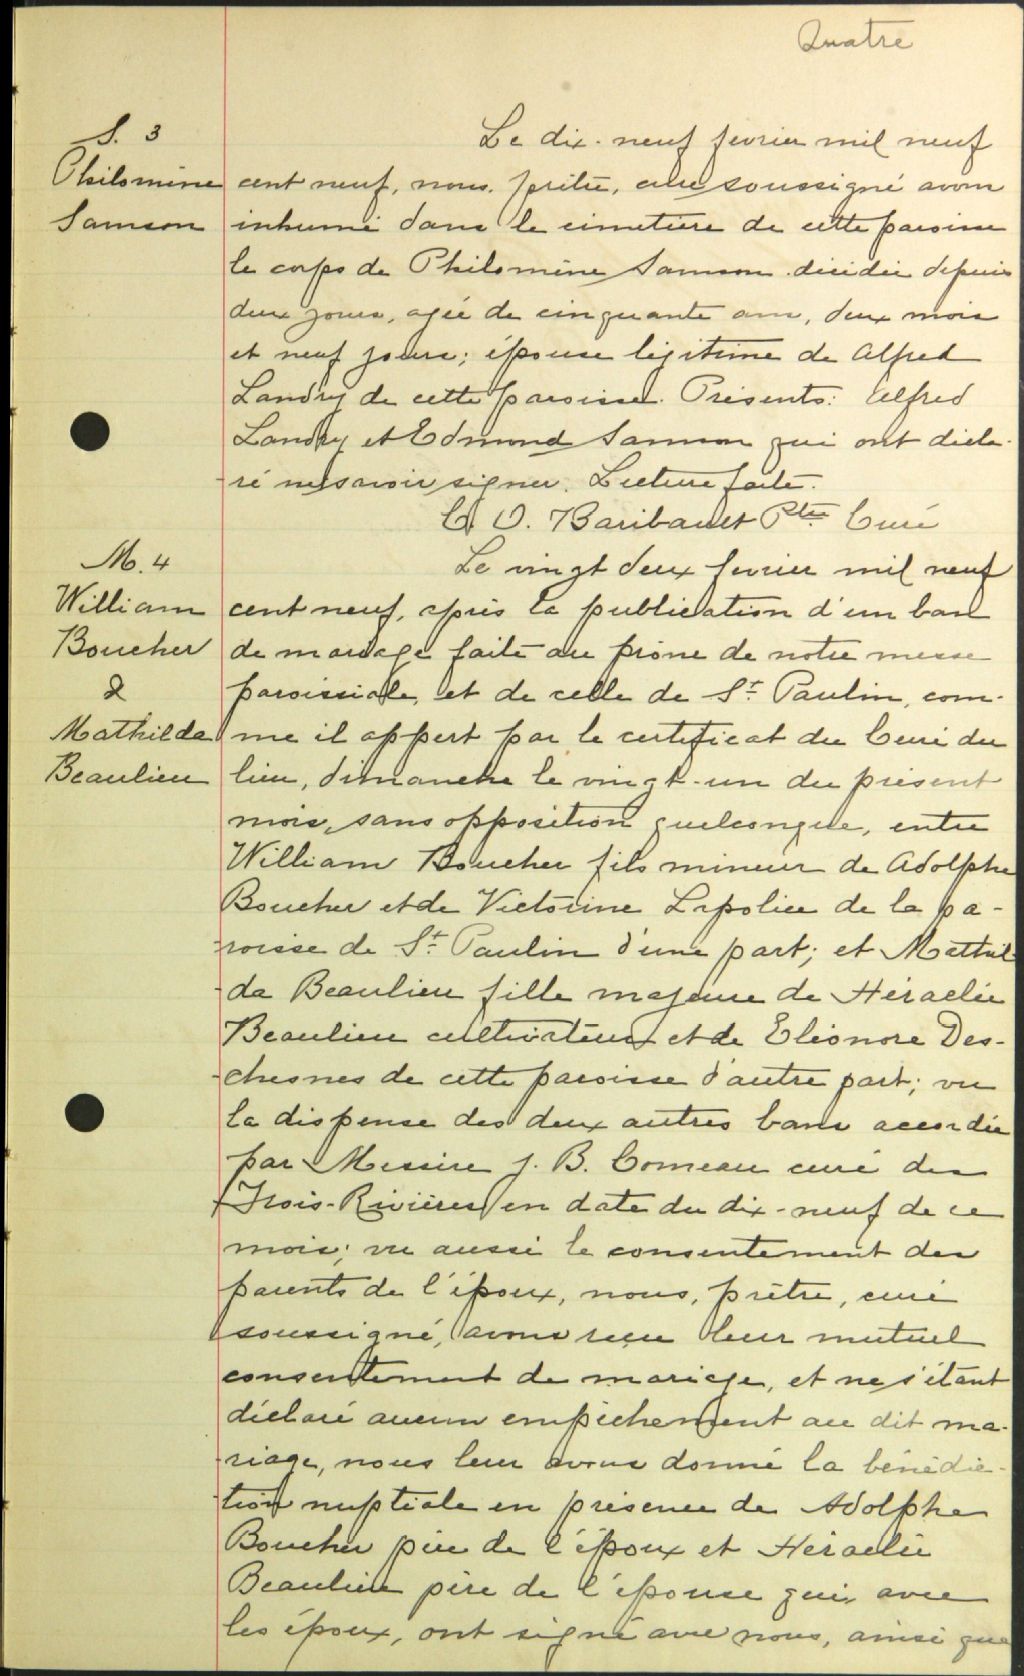 Quatre
S. 3
Philomine
Samson
Le dix-neuf fevrier mil neuf
cent neuf, nous, prêtre, curé soussigné avons
inhumé dans le cimetière de cette paroisse
le corps de Philomène Samson décidée depuis
deux jours, agée de cinquante ans, deux mois
et neuf jours; épouse légitime de Alfred
Landry de cette paroisse. Présents: Alfred
Landry et Edmond Samson qui ont décla-
ré ne savoir signer. Lecture faite.
O. Baribault Ptre Curé
M. 4
William
Boucher
&
Mathilda
Beaulieu
Le vingt deux fevrier mil neuf
cent neuf, après la publication d'un ban
de mariage faite au prône de notre messe
paroissiale, et de celle de St. Paulin, com-
me il appert par le certificat du Curé du
lieu, dimanche le vingt-un du présent
mois, sans opposition quelconque, entre
William Boucher fils mineur de Adolphe
Boucher et de Victorine de la pa-
roisse de St. Paulin d'une part; et Mathil-
da Beaulieu fille majeure de Héraclée
Beaulieu cultivateur et de Eléonore Des-
chesnes de cette paroisse d'autre part; vu
la dispense des deux autres bans accordée
par Messire J. B. Comeau curé des
Trois-Rivières en date du dix-neuf de ce
mois; vu aussi le consentement des
parents de l'époux, nous, prêtre, curé
soussigné, avons reçu leur mutuel
consentement de mariage, et ne s'étant
déclaré aucun empêchement au dit ma-
riage, nous leur avons donné la bénédic-
tion nuptiale en présence de Adolphe
Boucher père de l'époux et Héraclée
Beaulieu père de l'épouse qui, avec
les époux, ont signé avec nous, ainsi que